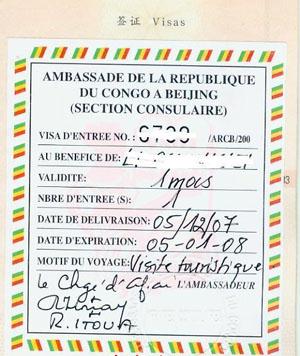 签证 Visas
AMBASSADE DE LA REPUBLIQUE
DU CONGO A BEIJING
(SECTION CONSULAIRE)
VISA D'ENTREE NO. : /ARCB/200
AU BENEFICE DE:
VALIDITE: 1 mois
NBRE D'ENTREE (S): 1
DATE DE DELIVRAISON: 05/12/07
DATE D'EXPIRATION: 05-01-08
MOTIF DU VOYAGE: Visite touristique
Le Chge d'Af. ai L'AMBASSADEUR
R. ITOUA